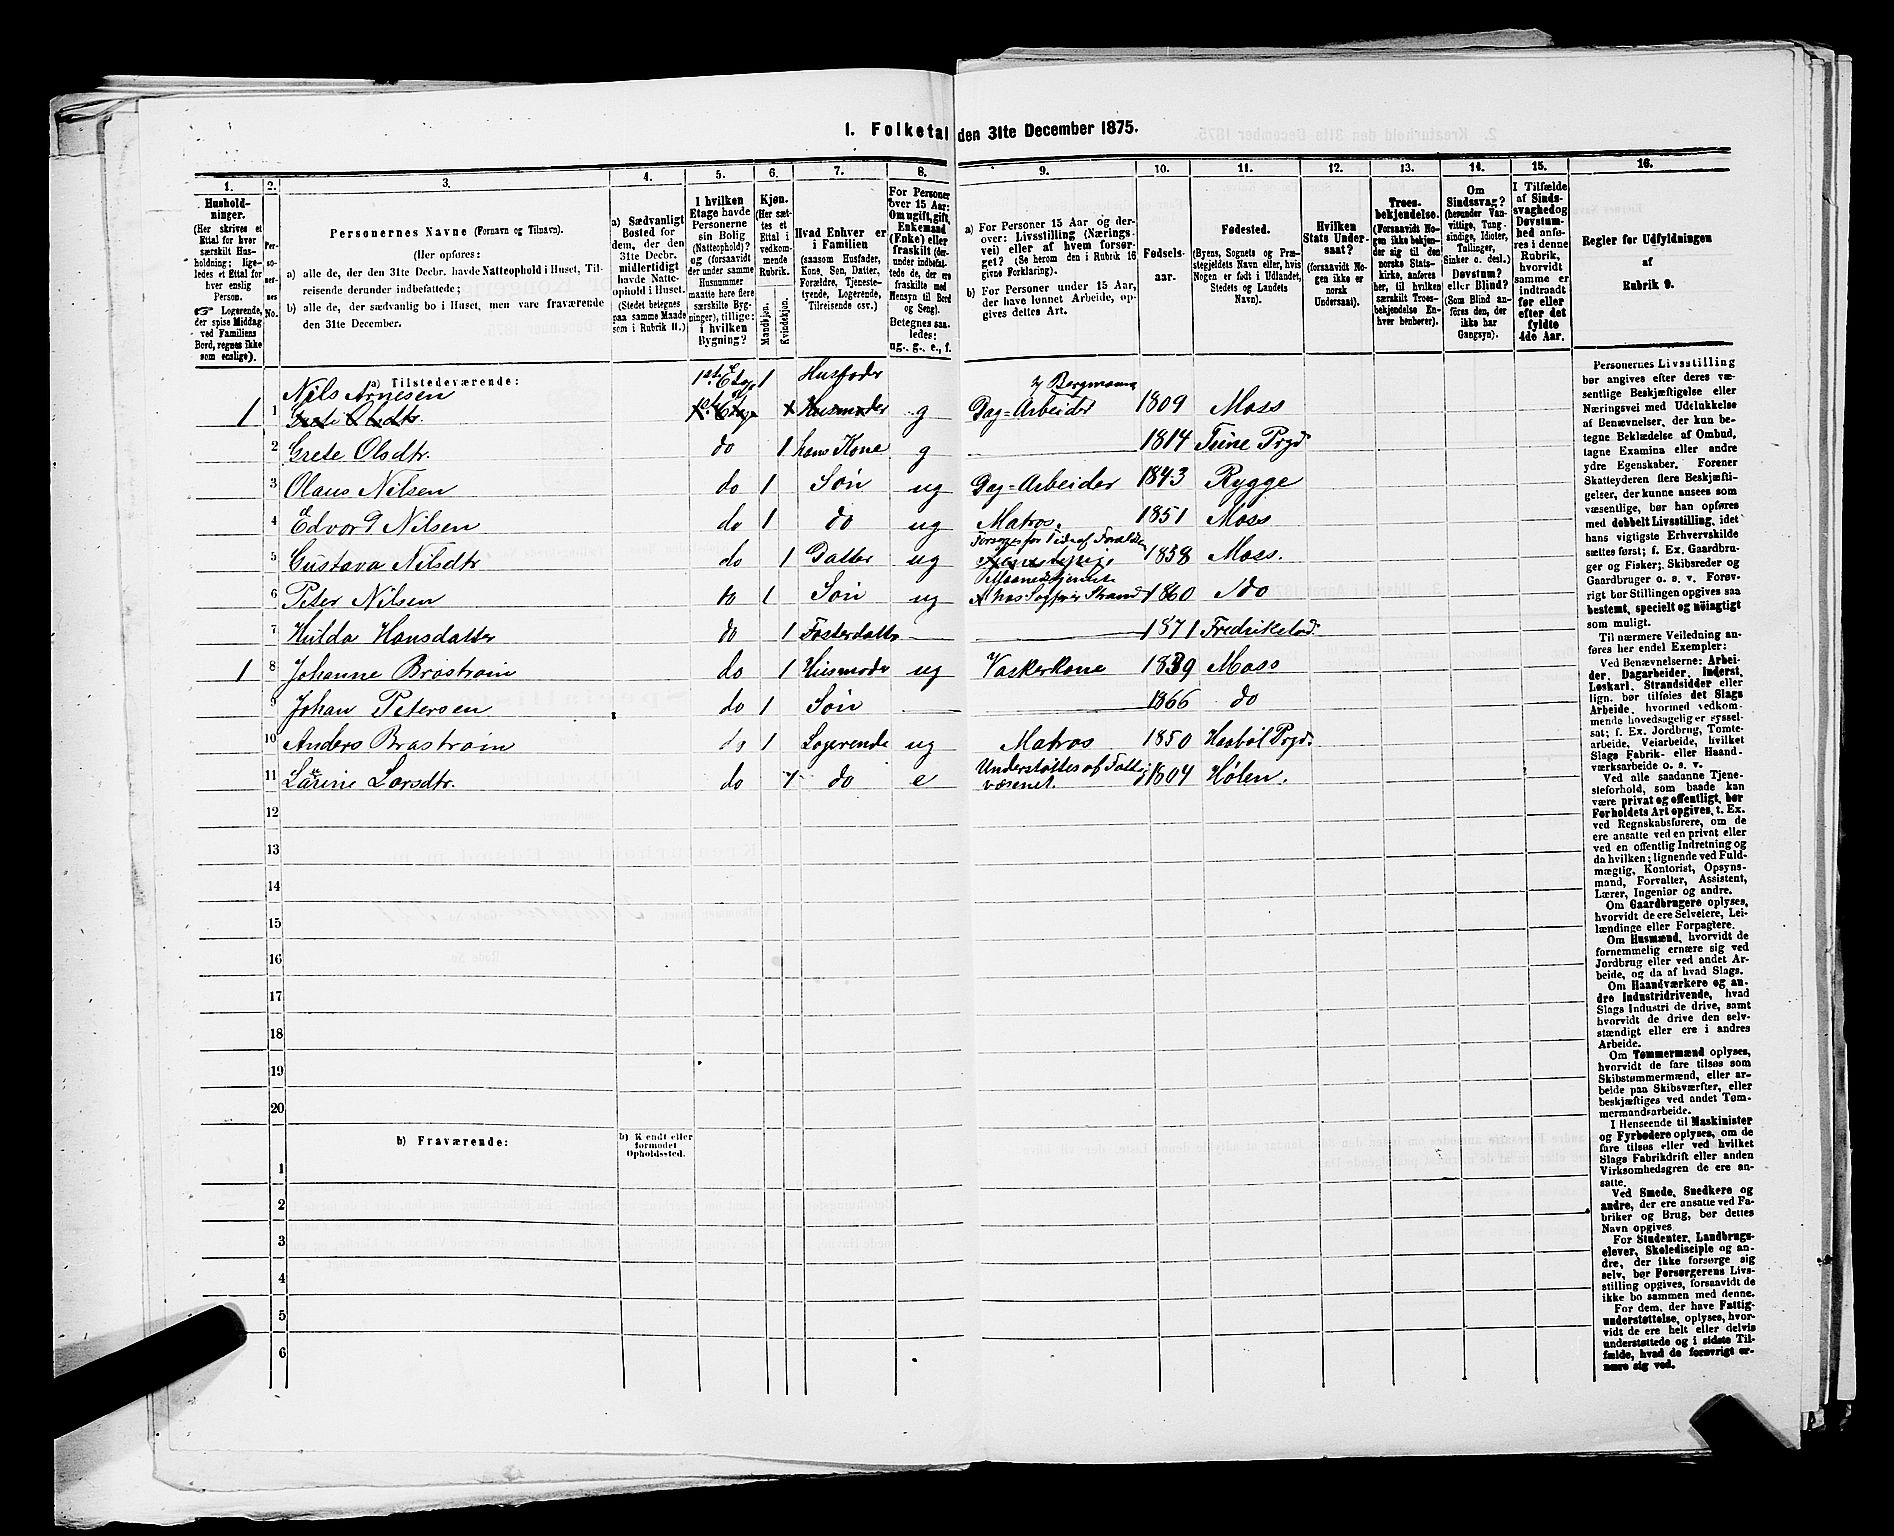 1. Folketal den 31te December 1875.
1. 2. 3. 4. 5. 6. 7. 8. 9. 10. 11. 12. 13. 14. 15. 16.
Hushold-
ninger.
(Her skrives et
Ettal for hver
særskilt Hus-
holdning; lige-
ledes et Ettal for
hver enslig
Person.
☞ Logerende,
der spise Middag
ved Familiens
Bord, regnes ikke
som enslige).
Per-
so-
ner-
nes
No.
Personernes Navne (Fornavn og Tilnavn).
(Her opføres:
a) alle de, der den 31te Decbr. havde Natteophold i Huset, Til-
reisende derunder indbefattede;
b) alle de, der sædvanlig bo i Huset, men vare fraværende
den 31te December.
a) Sædvanligt
Bosted for
dem, der den
31te Decbr.
midlertidigt
havde Natte-
ophold i Huset.
(Stedet betegnes
paa samme Maade
som i Rubrik 11.)
I hvilken
Etage havde
Personerne
sin Bolig
(Natteophold)?
og (forsaavidt
der under samme
Husnummer
maatte høre flere
særskilte Byg-
ninger), tillige:
i hvilken
Bygning?
Kjøn.
(Her sæt-
tes et
Ettal i
vedkom-
mende
Rubrik.
Mandkjøn.
Kvindekjøn.
Hvad Enhver er
i Familien
(saasom Husfader,
Kone, Søn, Datter,
Forældre, Tjeneste-
tyende, Logerende,
Tilreisende osv.)
For Personer
over 15 Aar:
Om ugift, gift,
Enkemand
(Enke) eller
fraskilt (der-
under indbefat-
tede de, der ere
fraskilte med
Hensyn til Bord
og Seng).
Betegnes saa-
ledes:
ug., g., e., f.
a) For Personer 15 Aar og der-
over: Livsstilling (Nærings-
vei) eller af hvem forsør-
get? (Se herom den i Rubrik 16
givne Forklaring).
b) For Personer under 15 Aar,
der have lønnet Arbeide, op-
gives dettes Art.
Fødsels-
aar.
Fødested.
(Byens, Sognets og Præ-
stegjeldets Navn eller, hvis
Nogen er født i Udlandet,
Stedets og Landets
Navn).
Hvilken
Stats Under-
saat?
(forsaavidt No-
gen ikke er
norsk
Undersaat).
Troes-
bekjendelse.
(Forsaavidt No-
gen ikke bekjen-
der sig til den
norske Stats-
kirke, anføres
her, til hvilken
særskilt Troes-
bekjendelse En-
hver henhører).
Om
Sindssvag?
(herunder Van-
vittige, Tung-
sindige, Idioter,
Tullinger,
Sinker o. desl.)
Døvstum?
eller Blind?
(Som Blind an-
føres den, der
ikke har
Gangsyn).
I Tilfælde
af Sinds-
svaghed og
Døvstum-
hed anfø-
res i denne
Rubrik,
hvorvidt
samme er
indtraadt
før eller
efter det
fyldte
4de Aar.
Regler for Udfyldningen
af
Rubrik 9.
a) Tilstedeværende:
Nils Arnesen 1ste Etage 1 Husfader
1 1 Grete Olsdtr. 1ste Etage 1 Husmoder g Dag-Arbeider 1809 Moss
2 Grete Olsdtr. do 1 hans Kone g 1814 Tune Prgd
3 Olaus Nilsen do 1 Søn ug Dag-Arbeider 1843 Rygge
4 Edvard Nilsen do 1 do ug Matros. 1851 Moss
5 Gustava Nilsdtr do 1 Datter ug 1858 Moss.
6 Peter Nilsen do 1 Søn ug 1860 do
7 Hulda Hansdatter do 1 Fosterdatter 1871 Fredrikstad
1 8 Johanne Brastrøin do 1 Husmoder ug Vaskerkone 1839 Moss
9 Johan Petersen do 1 Søn 1866 do
10 Anders Brastrøin do 1 Logerende ug Matros 1850 Haabøl Prgd.
11 Larine Larsdtr. do 1 do e Understøttes af Fattig-
væsenet. 1804 Hølen.
12
13
14
15
16
17
18
19
20
b) Fraværende:
b) Kjendt eller
formodet
Opholdssted.
1
2
3
4
5
6
Personernes Livsstilling
bør angives efter deres væ-
sentlige Beskjæftigelse eller
Næringsvei med Udelukkelse
af Benævnelser, der kun be-
tegne Beklædelse af Ombud,
tagne Examina eller andre
ydre Egenskaber. Forener
Skatteyderen flere Beskjæfti-
gelser, der kunne ansees som
væsentlige, bør han opføres
med dobbelt Livsstilling, idet
hans vigtigste Erhvervskilde
sættes først; f. Ex. Gaardbru-
ger og Fisker; Skibsreder og
Gaardbruger o. s. v. Forøv-
rigt bør Stillingen opgives saa
bestemt, specielt og nøiagtigt
som muligt.
Til nærmere Veiledning an-
føres her endel Exempler:
Ved Benævnelserne: Arbei-
der, Dagarbeider, Inderst,
Løskarl, Strandsidder eller
lign. bør tilføies det Slags
Arbeide, hvormed vedkom-
mende hovedsagelig er syssel-
sat; f. Ex. Jordbrug, Tomte-
arbeide, Veiarbeide, hvilket
Slags Fabrik- eller Haand-
værksarbeide o. s. v.
Ved alle saadanne Tjene-
steforhold, som baade kan
være privat og offentligt, bør
Forholdets Art opgives, t. Ex.
ved Regnskabsførere, om de
ere ansatte ved en privat eller
ved en offentlig Indretning og
da hvilken; lignende ved Fuld-
mægtig, Kontorist, Opsyns-
mand, Forvalter, Assistent,
Lærer, Ingeniør og andre.
Om Gaardbrugere oplyses,
hvorvidt de ere Selveiere, Lei-
lændinge eller Forpagtere.
Om Husmænd, hvorvidt de
fornemmelig ernære sig ved
Jordbrug eller ved andet Ar-
beide, og da af hvad Slags.
Om Haandværkere og an-
dre Industridrivende, hvad
Slags Industri de drive, samt
hvorvidt de drive den selv-
stændigt eller ere i andres
Arbeide.
Om Tømmermænd oplyses,
hvorvidt de fare tilsøs som
Skibstømmermænd, eller ar-
beide paa Skibsværfter, eller
beskjæftiges ved andet Tøm-
mermandsarbeide.
I Henseende til Maskinister
og Fyrbødere oplyses, om de
fare tilsøs eller ved hvilket
Slags Fabrikdrift eller anden
Virksomhedsgren de ere an-
satte.
Ved Smede, Snedkere og
andre, der ere ansatte ved Fa-
briker og Brug, bør dettes
Navn opgives.
For Studenter, Landbrugs-
elever, Skoledisciple og an-
dre, der ikke forsørge sig
selv, bør Forsørgerens Livs-
stilling opgives, forsaavidt de
ikke bo sammen med denne.
For dem, der have Fattig-
understøttelse, oplyses, hvor-
vidt de ere helt eller delvis
understøttede og i sidste Til-
fælde, hvad de forøvrigt er-
nære sig ved.